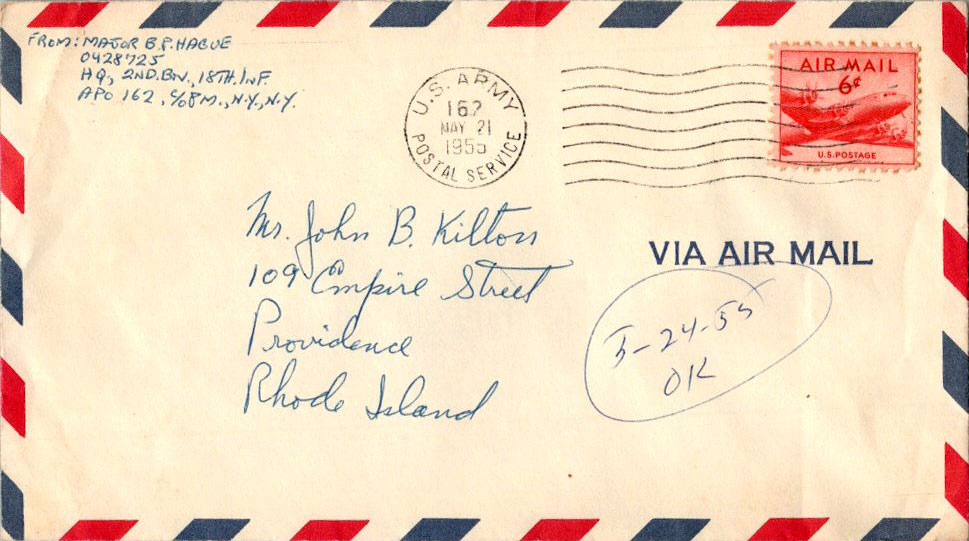 FROM: MAJOR B.P. HAGUE
0428725
HQ, 2ND. BN., 18TH. INF.
APO 162, C/O P.M., N.Y., N.Y.
U.S. ARMY
162
MAY 21
1955
POSTAL SERVICE
AIR MAIL
6¢
U.S. POSTAGE
Mr. John B. Kilton
109 Empire Street
Providence
Rhode Island
VIA AIR MAIL
5-24-55
OK